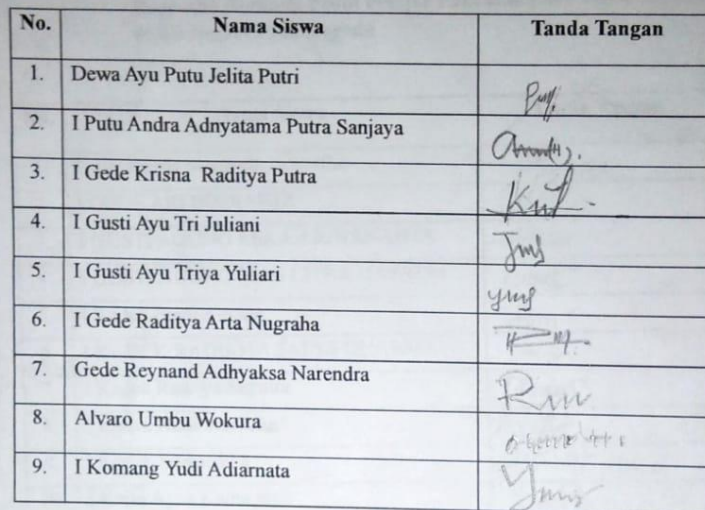 No. Nama Siswa Tanda Tangan
1. Dewa Ayu Putu Jelita Putri
2. I Putu Andra Adnyatama Putra Sanjaya
3. I Gede Krisna Raditya Putra
4. I Gusti Ayu Tri Juliani
5. I Gusti Ayu Triya Yuliari
6. I Gede Raditya Arta Nugraha
7. Gede Reynand Adhyaksa Narendra
8. Alvaro Umbu Wokura
9. I Komang Yudi Adiarnata